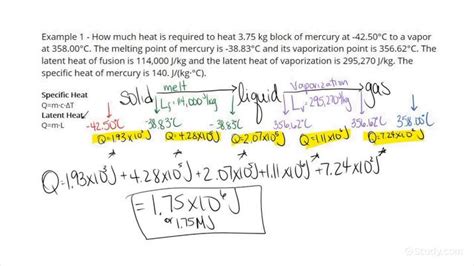 Example 1 - How much heat is required to heat 3.75 kg block of mercury at -42.50°C to a vapor
at 358.00°C. The melting point of mercury is -38.83°C and its vaporization point is 356.62°C. The
latent heat of fusion is 114,000 J/kg and the latent heat of vaporization is 295,270 J/kg. The
specific heat of mercury is 140. J/(kg·°C).
Specific Heat
Q=m·c·ΔT
Latent Heat
Q=m·L
solid melt liquid Vaporization gas
L =295,270 J/kg
-42.50°C -38.83°C -38.83°C 356.62°C 356.62°C 358.00°C
Q=1.93x10³J Q=4.28x10⁵J Q=2.07x10⁵J Q=1.11x10⁶J Q=7.24x10²J
Q=1.93x10³J+4.28x10⁵J+2.07x10⁵J+1.11x10⁶J+7.24x10²J
=1.75x10⁶J
or 1.75MJ
Study.com